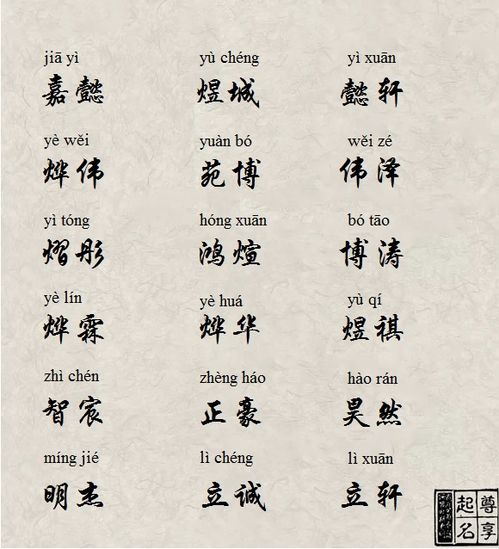 jiā yì yù chéng yì xuān
嘉懿 煜城 懿轩
yè wěi yuàn bó wěi zé
烨伟 苑博 伟泽
yì tóng hóng xuān bó tāo
熠彤 鸿煊 博涛
yè lín yè huá yù qí
烨霖 烨华 煜祺
zhì chén zhèng háo hào rán
智宸 正豪 昊然
míng jié lì chéng lì xuān
明杰 立诚 立轩
尊享
起名